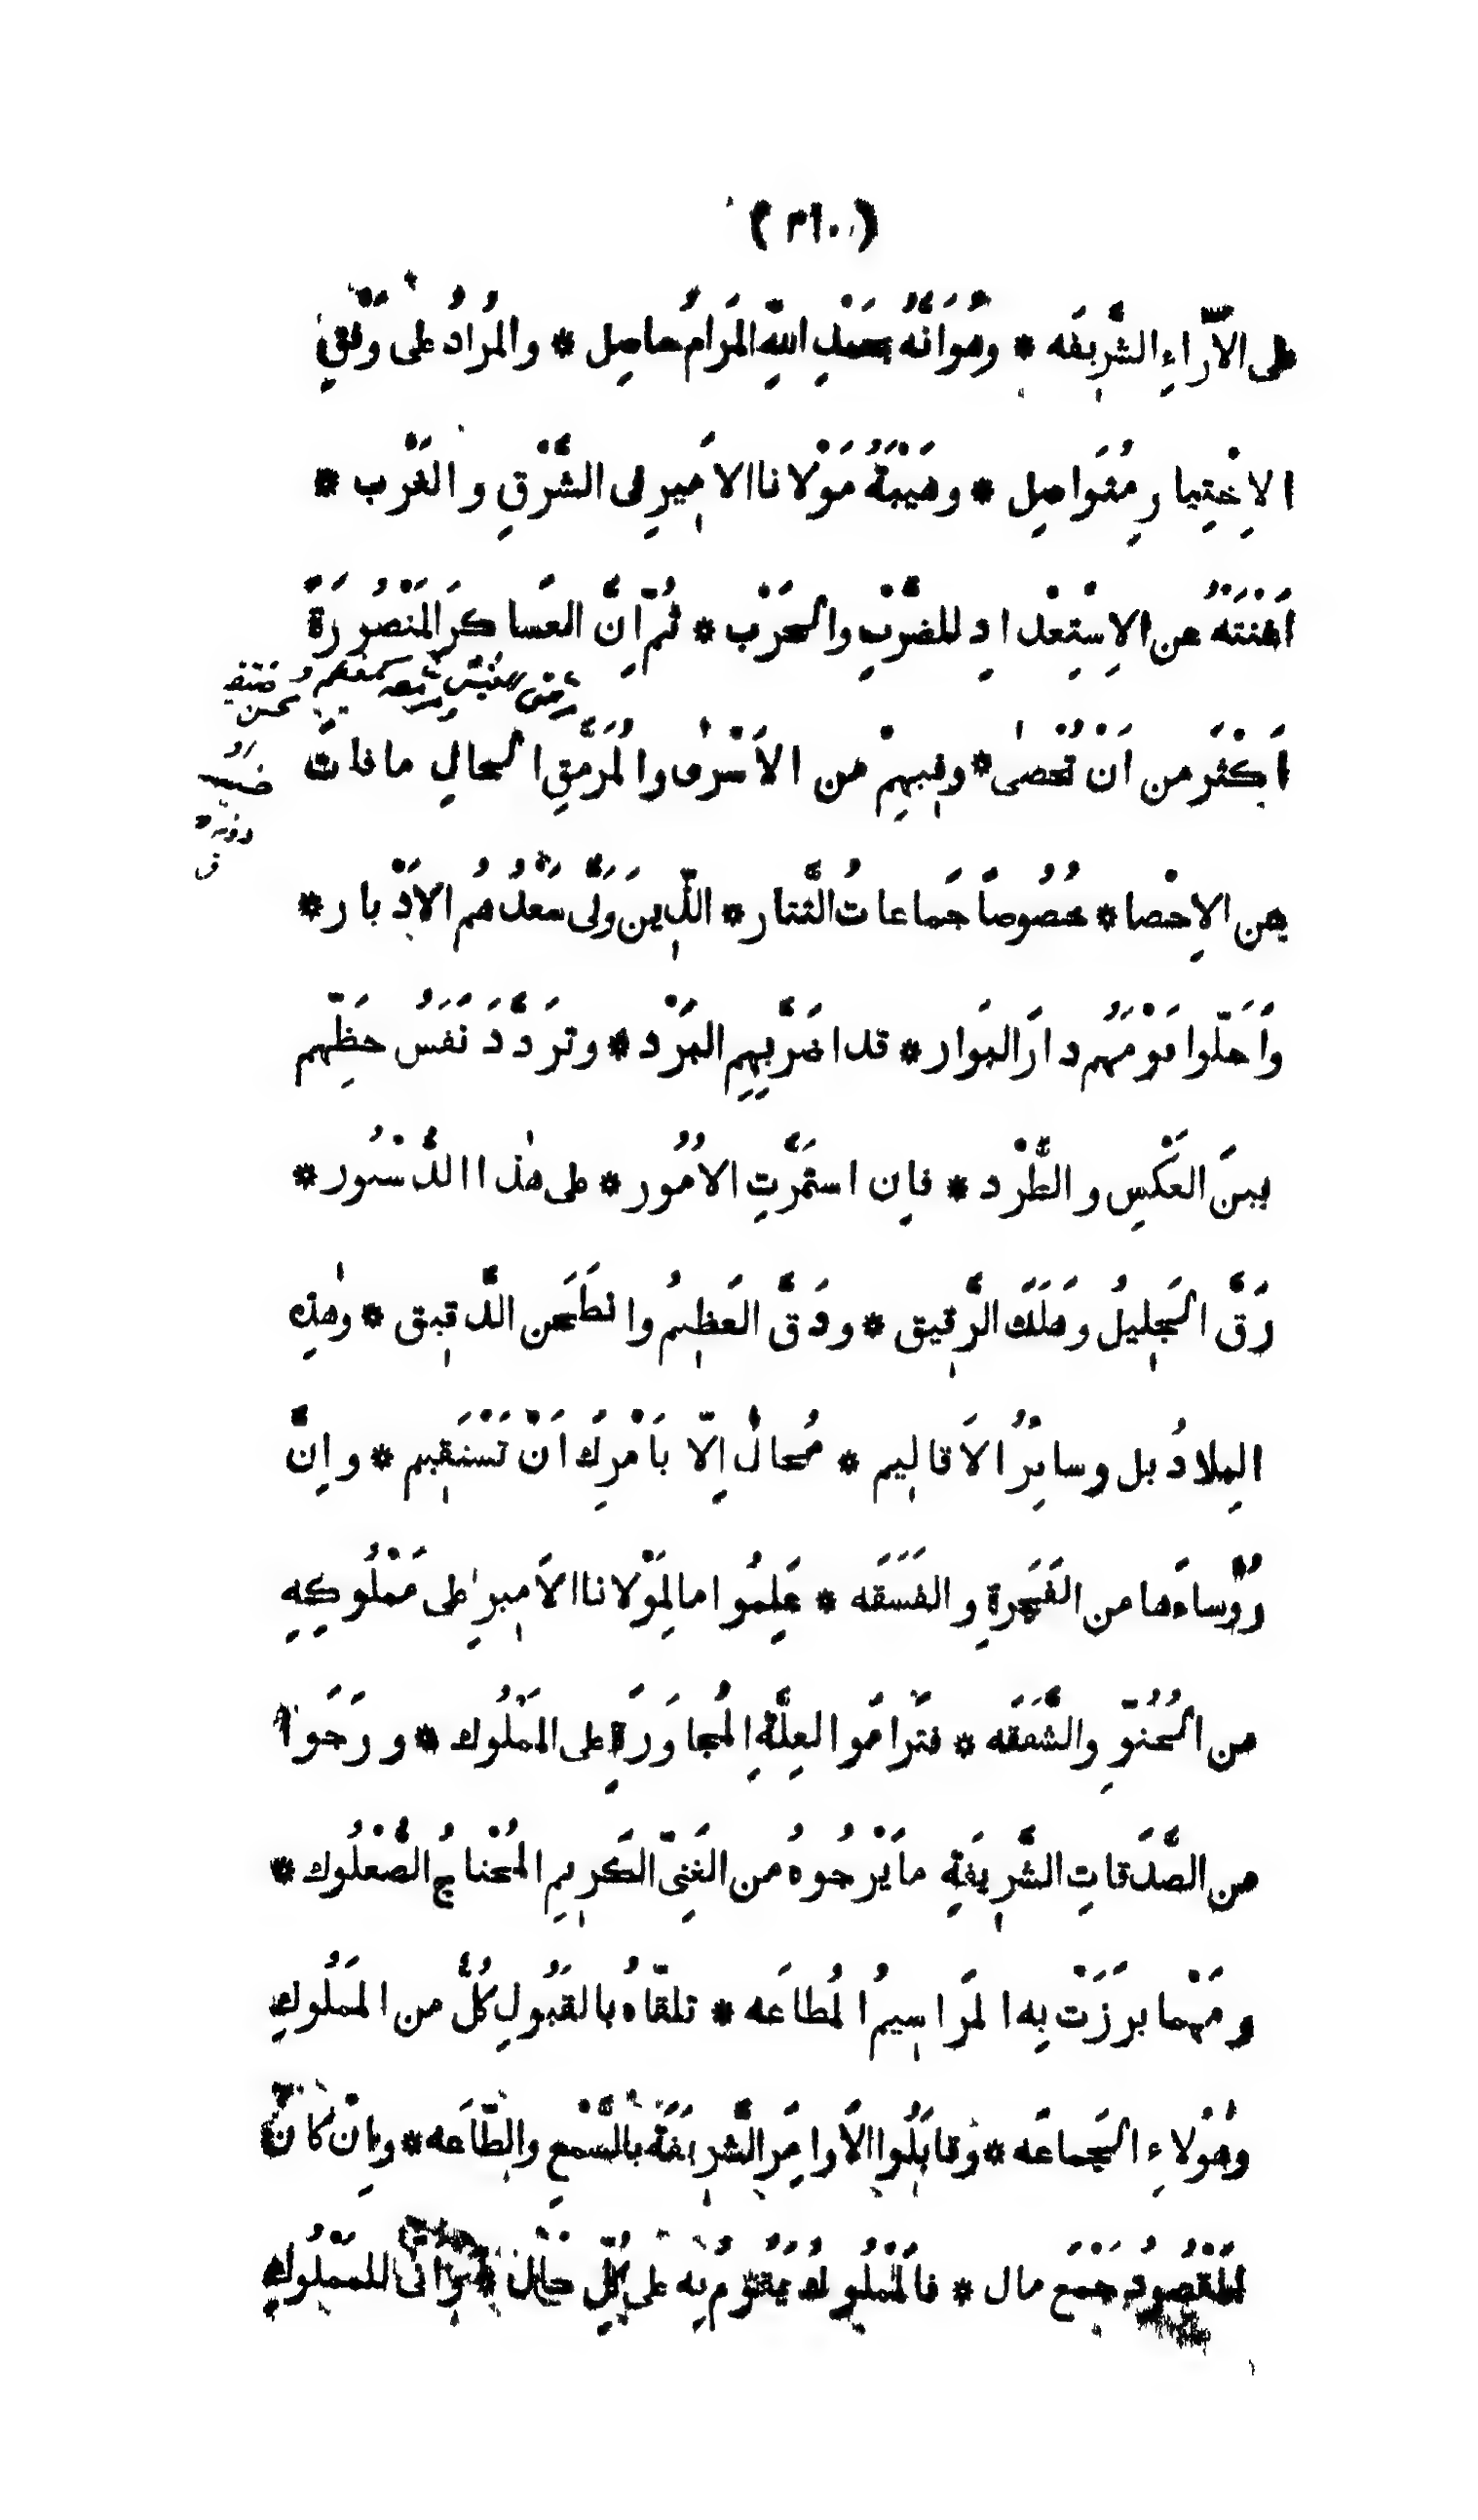 على الآرَاءِ الشَّرِيفَه * وهُوَ اَنَّهُ بحَمْدِ اللّٰهِ المَرَامُ حاصِل * والمُرَادُ على وَفْقِ
الاِخْتِيارِ مُتَوَاصِل * وهَيْبَةُ مَوْلانا الاَمِيرِ فى الشَّرْقِ والغَرْب *
اَغْنَتْهُ عن الاِسْتِعْدادِ للضَّرْبِ والحَرْب * ثُمّ اِنَّ العَساكرَ المَنْصُورَةَ
اَكْثَرَ من اَنْ تُحْصىٰ * وفِيهِمْ من الاَسْرىٰ والمُرَمَّقِ الحالِ ما فاتَ
عن الاِحْصا * خُصُوصاً جَماعاتُ التَّتار * الّذِينَ وَلَّى سَعْدُهُم الاَدْبار *
وَاَحَلّوا قَوْمَهُم دارَ البَوار * قد اضَرَّ بِهِمِ البَرْد * وتَرَدَّدَ نَفَسُ حَظِّهِم
بينَ العَكْسِ والطَّرْد * فاِن استمَرَّتِ الاُمُور * على هٰذا الدُّسْتُور *
رَقَّ الجَلِيلُ وهَلَكَ الرَّقِيق * ودَقَّ العَظِيمُ وانطَحَن الدَّقِيق * وهٰذِه
البِلادُ بل وسائِرُ الاَقالِيم * مُحالٌ اِلّا بِاَمْرِكَ اَنْ تَسْتَقِيم * واِنَّ
رُؤَساءَها من الفَجَرةِ والفَسَقَه * عَلِمُوا ما لِمَوْلانا الاَمِيرِ على مَمْلُوكِهِ
من الحُنُوِّ والشَّفَقَه * فتَرامَوا لعِلَّةِ المُجاوَرَةِ على المَمْلُوك * ورَجَوا
من الصَّدَقاتِ الشَّرِيفَةِ ما يَرْجُوهُ من الغَنِىّ الكَرِيمِ المُحْتاجُ الصُّعْلُوك *
ومَهْما بَرَزَتْ بِه المَراسِيمُ المُطاعَه * تلقّاهُ بالقَبُولِ كُلٌّ من المَمْلُوكِ
وهٰؤلاءِ الجَماعَه * وقابَلُوا الاَوامِرَ الشَّرِيفَةَ بالسَّمْعِ والطّاعَه * واِنْ كانَ
المَقْصُودُ جَمْعَ مال * فالمَمْلُوكُ يَقُومُ بِه على كُلِّ حال * واَنّى للمَمْلُوكِ